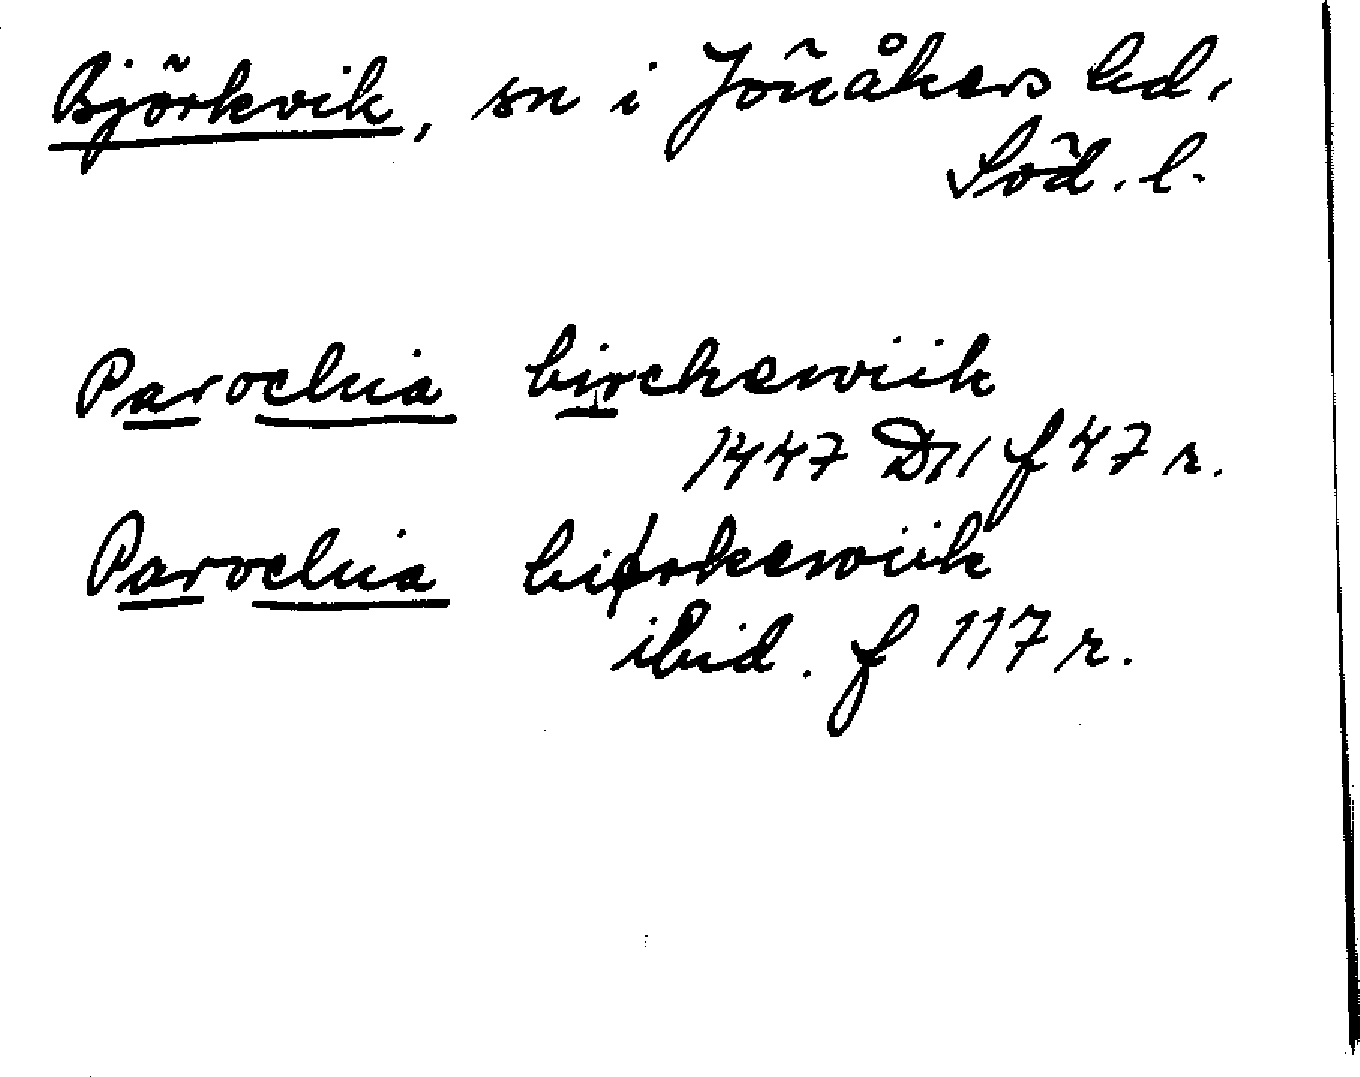 Björkvik, sn i Jönåkers hd,
Söd. l.
Parochia birchewiik
1447 D11 f 47 r.
Parochia birkewiik
ibid. f 117 r.